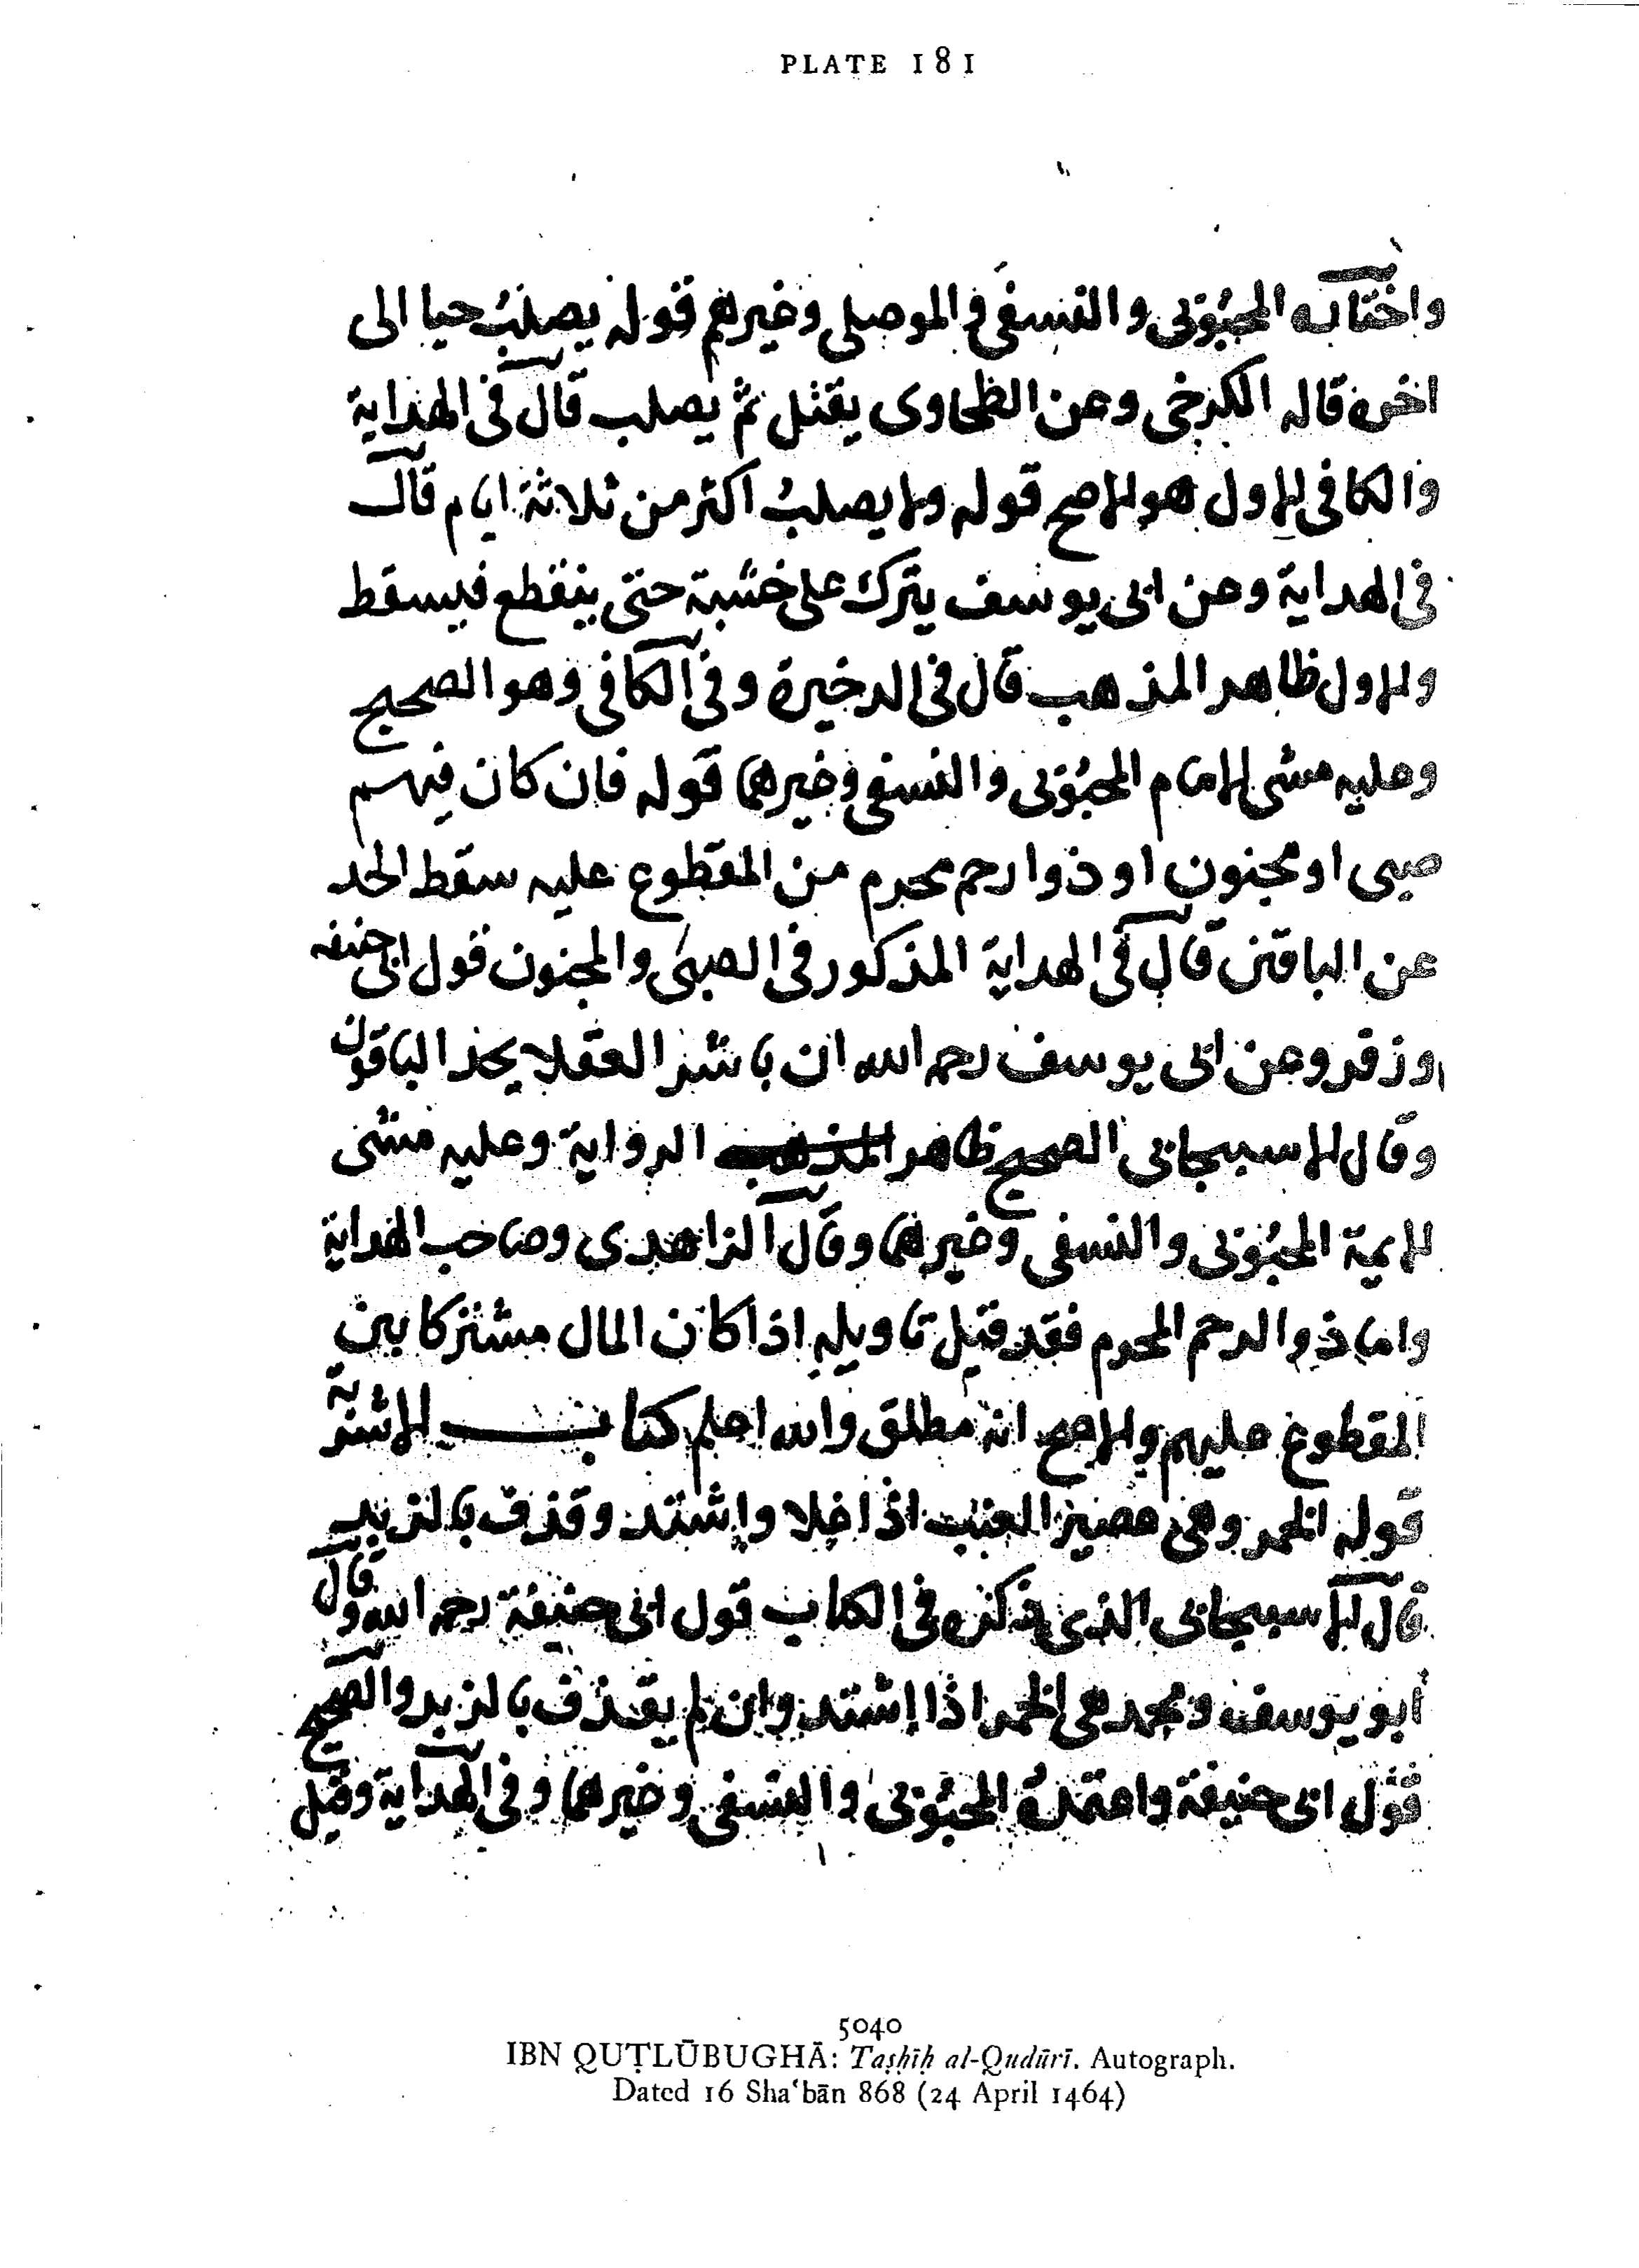 PLATE 181
واختاره المحبوبى والنسفى والموصلى وغيرهم قوله يصلب حيا الى
اخره قاله الكرخى وعن الطحاوى يقتل ثم يصلب قال فى الهداية
والكافى الاول هو الاصح قوله ولا يصلب اكثر من ثلاثة ايام قال
فى الهداية وعن ابى يوسف يترك على خشبة حتى ينقطع فيسقط
والاول ظاهر المذهب قال فى الدخيرة وفى الكافى وهو الصحيح
وعليه مشى الامام المحبوبى والنسفى وغيرهما قوله فان كان فيهم
صبى او مجنون او ذوا رحم محرم من المقطوع عليه سقط الحد
عن الباقين قال فى الهداية المذكور فى الصبى والمجنون قول ابى حنيفه
وزفر وعن ابى يوسف رحمه الله ان باشر العقلا يحد الباقون
وقال الاسبيجابى الصحيح ظاهر المذهب الرواية وعليه مشى
الايمة المحبوبى والنسفى وغيرهما وقال الزاهدى وصاحب الهداية
واما ذو الرحم المحرم فقد قيل تاويله اذا كان المال مشتركا بين
المقطوع عليهم والاصح انه مطلق والله اعلم كتاب الاشربة
قوله الخمر وهى عصير العنب اذا غلا واشتد وقذف بالزبد
قال الاسبيجابى الذى ذكره فى الكتاب قول ابى حنيفة رحمه الله وقال
ابو يوسف ومحمد هى الخمر اذا اشتد وان لم يقذف بالزبد والصحيح
قول ابى حنيفة واعتمده المحبوبى والنسفى وغيرهما وفى الهداية وقيل
5040
IBN QUṬLŪBUGHĀ: Taṣḥīḥ al-Qudūrī. Autograph.
Dated 16 Sha‘bān 868 (24 April 1464)